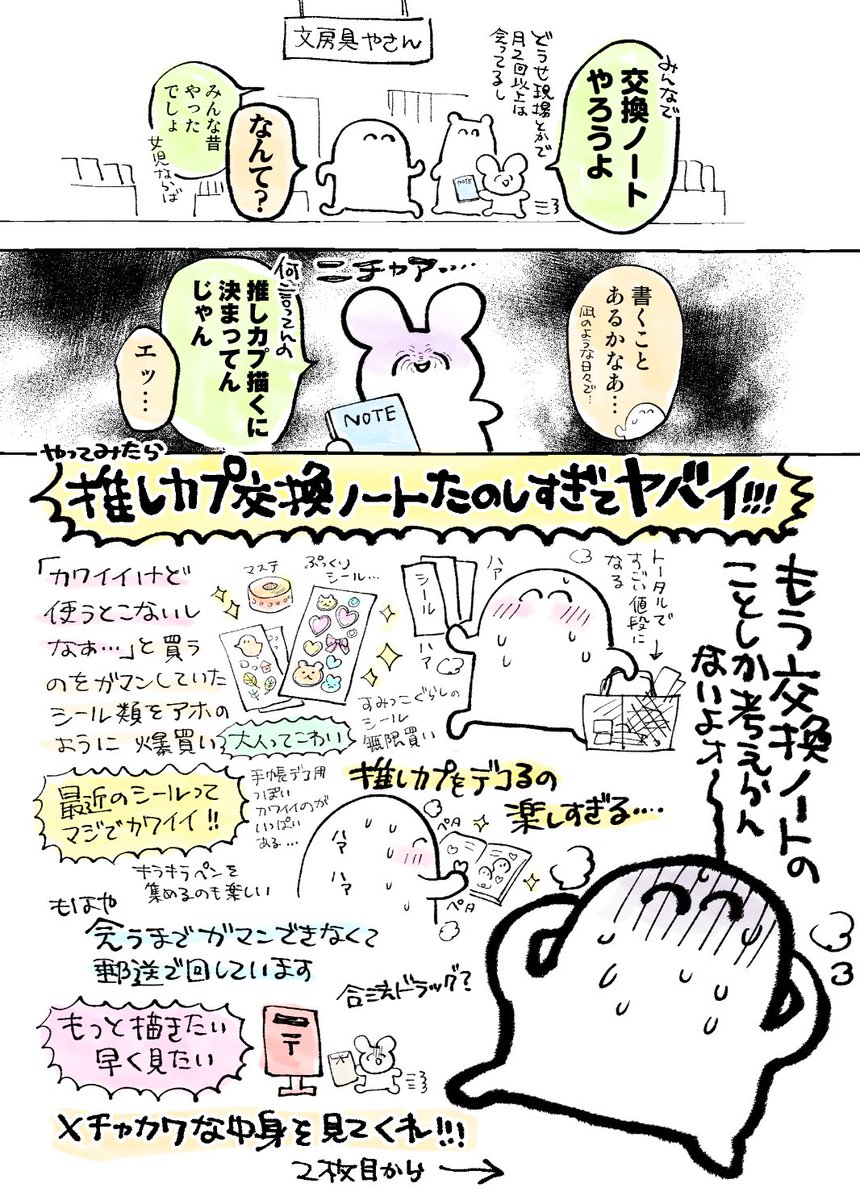 文房具やさん
みんなで
交換ノート
やろうよ
どうせ現場とかで
月2回以上は
会ってるし
なんて?
みんな昔
やった
でしょ
女児ならば
書くこと
あるかなあ…
凪のような日々で…
ニチャア……
NOTE
何言ってんの
推しカプ描くに
決まってん
じゃん
エッ…
NOTE
やってみたら
推しカプ交換ノートたのしすぎてヤバイ!!!
もう交換ノートの
ことしか考えらん
ないよォ〜
トータルで
すごい値段に
なる
ハァ
ハァ
シール
ぷっくり
シール…
マステ
「カワイイけど
使うとこないし
なぁ…」と買う
のをガマンしていた
シール類をアホの
ように爆買い
大人ってこわい
すみっこぐらしの
シール
無限買い
最近のシールって
マジでカワイイ!!
手帳デコ用
っぽい
カワイイのが
いっぱい
ある…
キラキラペンを
集めるのも楽しい
推しカプをデコるの
楽しすぎる….
ハァ
ハァ
ペタ
ペタ
もはや
会うまでガマンできなくて
郵送で回しています
合法ドラッグ?
もっと描きたい
早く見たい
〒
メチャカワな中身を見てくれ!!!
2枚目から→